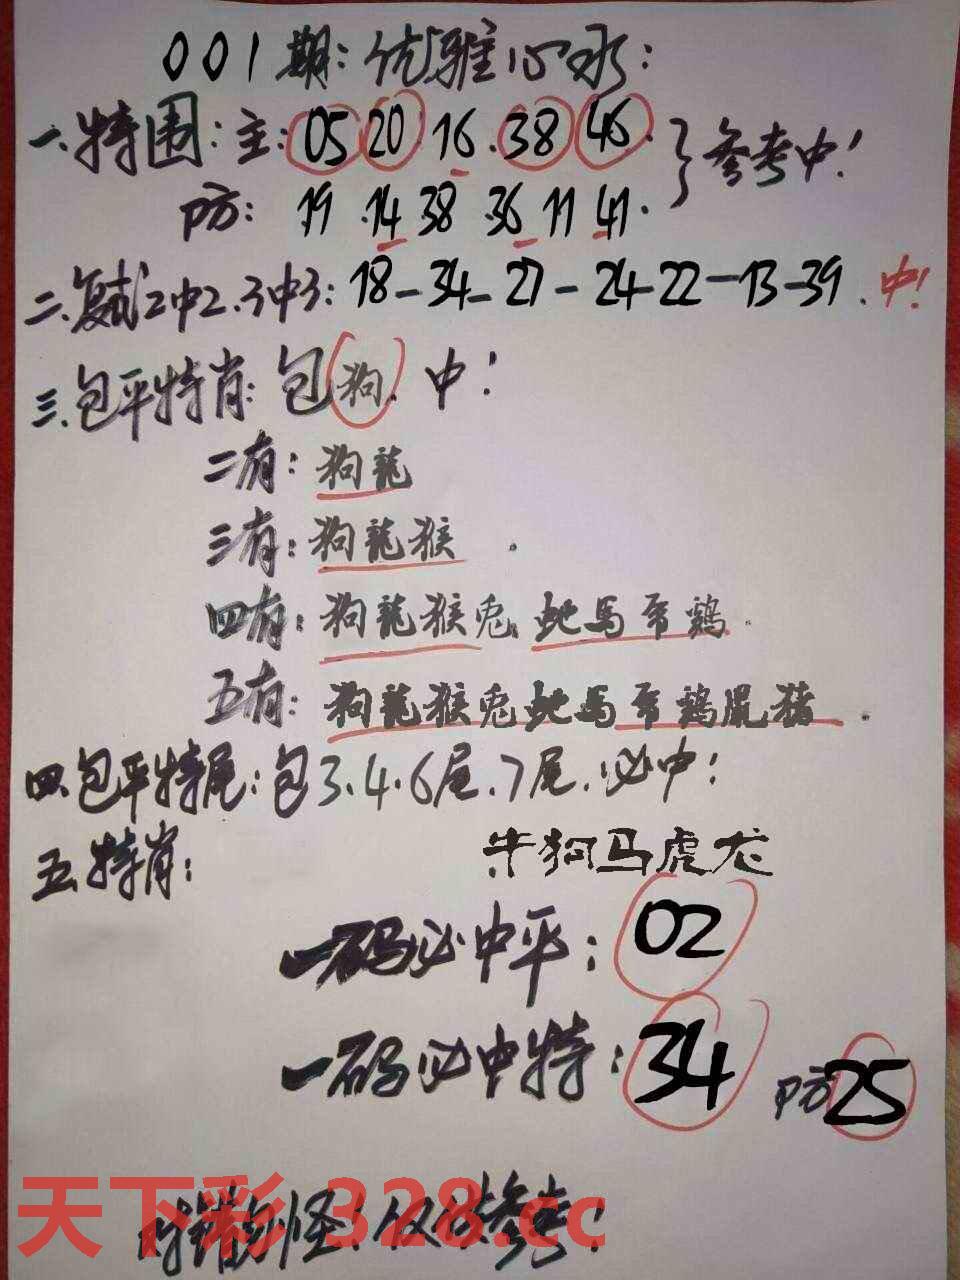 001期：优雅心水：
一.特围：主：05 20 16.38 46. }参考中！
防：19.14 38.36 11 41.
二.复试2中2.3中3：18-34-27-24-22-13-39.中！
三.包平特肖：包狗.中！
二有：狗龍
三有：狗龍猴.
四有：狗龍猴兎蛇馬帋鷄.
五有：狗龍猴兎蛇馬帋鷄鼠猪.
四.包平特尾：包3.4.6尾.7尾.必中！
五.特肖：牛狗马虎龙
一码必中平：02
一码必中特：34 防25
对错勿怪！仅供参考！
天下彩 328.cc